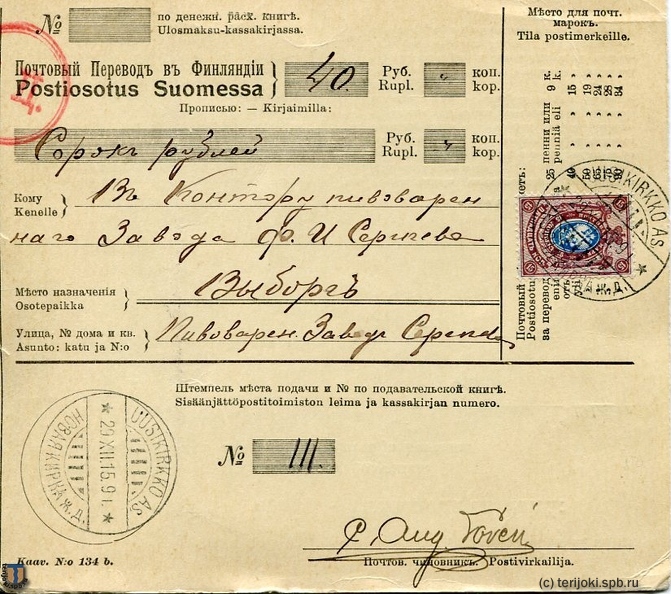 № по денежн. расх. книгѣ.
Ulosmaksu-kassakirjassa.
Мѣсто для почт. марокъ.
Tila postimerkeille.
Почтовый Переводъ въ Финляндіи
Postiosotus Suomessa
40 Руб. Rupl. " коп. kop.
Прописью: — Kirjaimilla:
Сорокъ рублей Руб. Rupl. " коп. kop.
Кому
Kenelle
Въ Контору пивоварен
наго Завода Ф. И Сергѣева
Мѣсто назначенія
Osotepaikka
Выборгъ
Улица, № дома и кв.
Asunto: katu ja N:o
Пивоварен. Заводъ
Почтовый
Postiosotus
за перевод
пенни или 9 к.
penniä eli
15
19
24
28
34
UUSIKIRKKO AS
Ж.Д.
Штемпель мѣста подачи и № по подавательской книгѣ.
Sisäänjättöpostitoimiston leima ja kassakirjan numero.
UUSIKIRKKO AS
29 XII.15.9 I.
НОВАЯ КИРКА Ж. Д.
№ 111.
Почтов. чиновникъ. Postivirkailija.
Kaav. N:o 134 b.
(c) terijoki.spb.ru